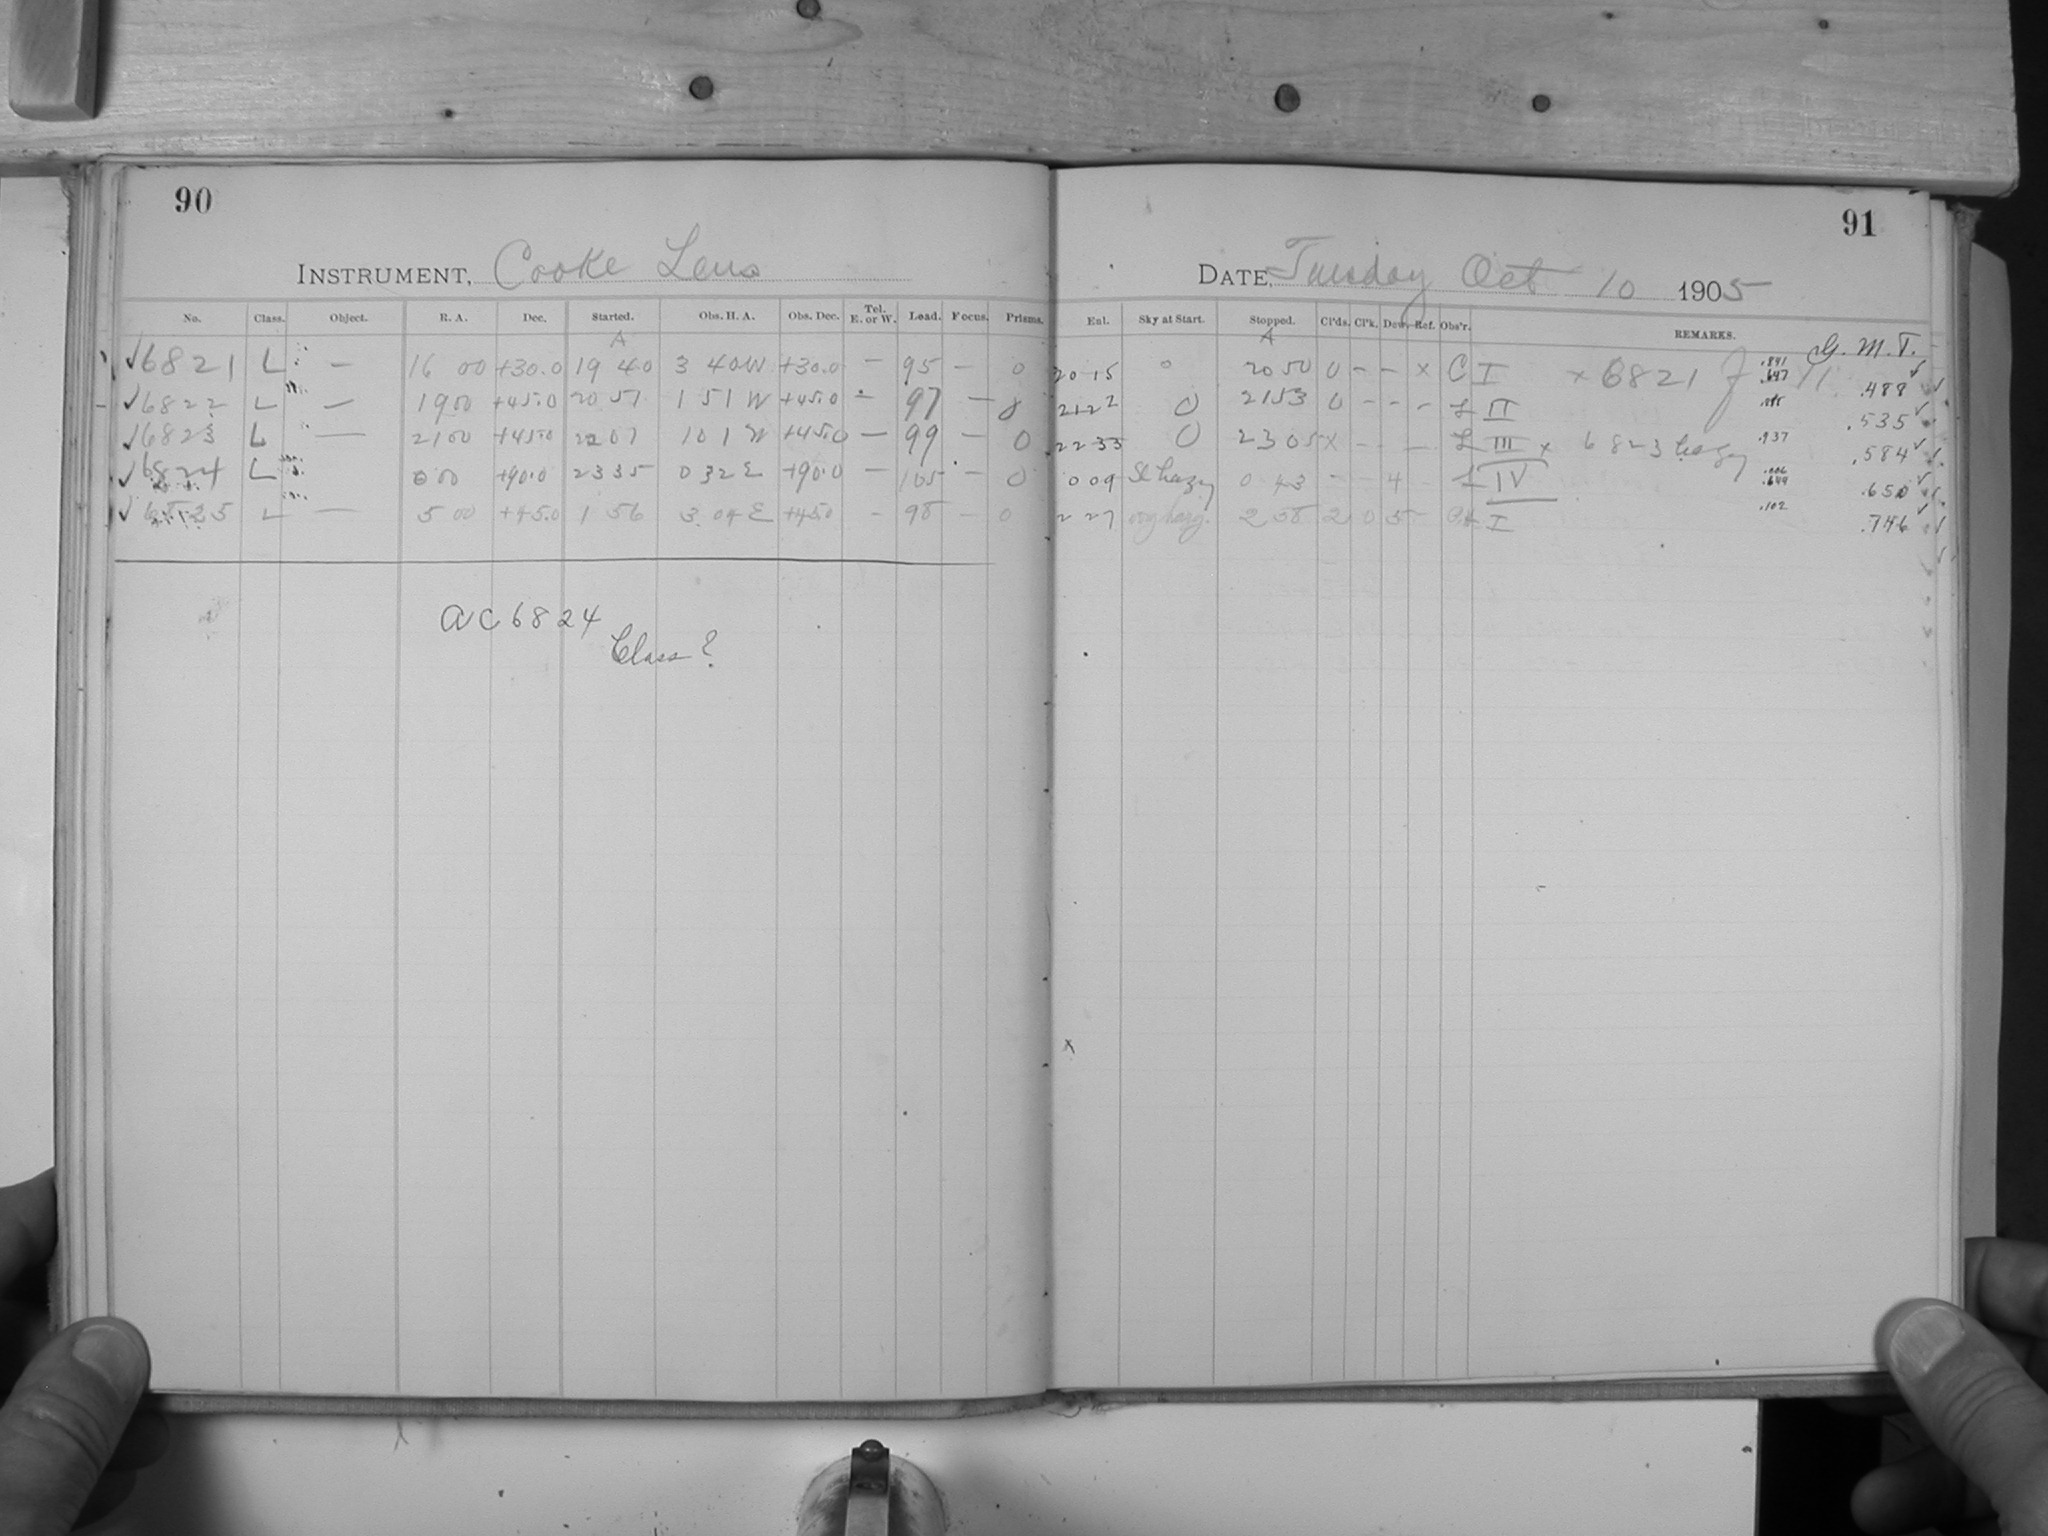 90
INSTRUMENT, Cooke Lens
No. Class. Object. R. A. Dec. Started. Obs. H. A. Obs. Dec. Tel. E. or W. Lead. Focus. Prisms.
A
✓6821 L — 16 00 +30.0 19 40 3 40W +30.0 — 95 — 0
✓6822 L — 19 00 +45.0 20 51 1 51 W +45.0 - 97 — 0
✓6823 L — 21 00 +45.0 22 01 1 01 W +45.0 — 99 — 0
✓6824 L 0 00 +90.0 23 35 0 32 E +90.0 — 105 — 0
✓6825 L — 5 00 +45.0 1 56 3 04 E +45.0 - 98 - 0
AC 6824
Class?
91
DATE, Tuesday Oct 10 1905
Enl. Sky at Start. Stopped. Cl'ds. Cl'k. Dew. Ref. Obs'r. REMARKS.
A G. M. T.
20 15 0 20 50 0 - - x C I x 6821 .841 .647 .488 ✓
21 22 0 21 53 0 - - - L II .535 ✓
22 33 0 23 05 x - - — L III x 6823 hazy .937 .584 ✓
0 09 Sl hazy 0 43 - - 4 - L IV .006 .649 .650 ✓
2 27 2 58 2 0 5 - I .102 .746 ✓